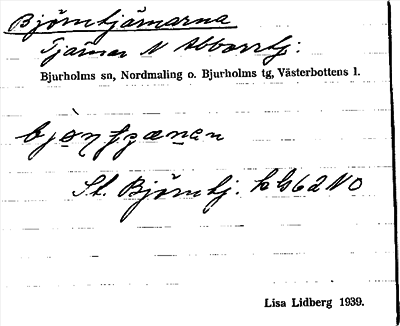 Björntjärnarna
Tjärnar N Abborrtj.
Bjurholms sn, Nordmaling o. Bjurholms tg, Västerbottens l.
St. Björntj. hb62 NO
Lisa Lidberg 1939.